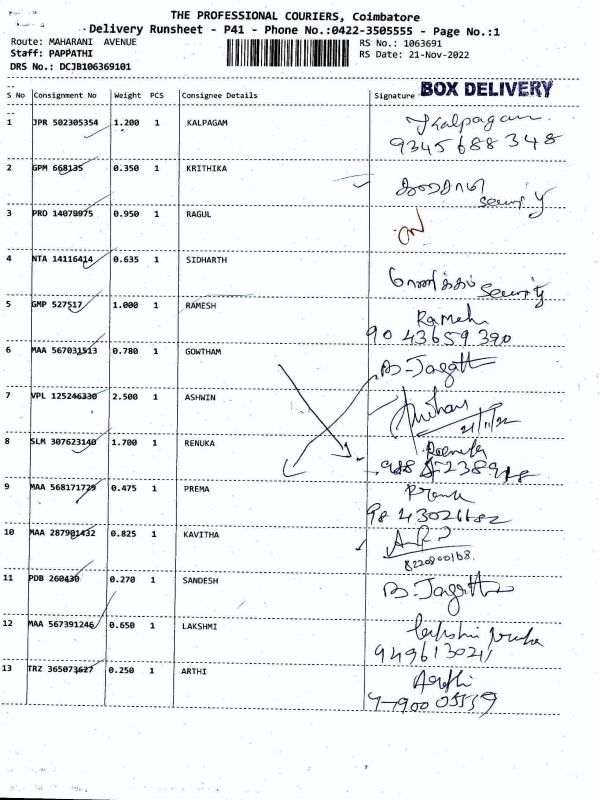 THE PROFESSIONAL COURIERS, Coimbatore
Delivery Runsheet - P41 - Phone No.:0422-3505555 - Page No.:1
Route: MAHARANI AVENUE RS No.: 1063691
Staff: PAPPATHI RS Date: 21-Nov-2022
DRS No.: DCJB106369101
BOX DELIVERY
S No Consignment No Weight PCS Consignee Details Signature
1 JPR 502305354 1.200 1 KALPAGAM Kalpagam
9345688348
2 GPM 668135 0.350 1 KRITHIKA
security
3 PRO 14079975 0.950 1 RAGUL
4 NTA 14116414 0.635 1 SIDHARTH
security
5 GMP 527517 1.000 1 RAMESH Ramesh
9043659390
6 MAA 567031513 0.780 1 GOWTHAM
7 VPL 125246330 2.500 1 ASHWIN
21/11/22
8 SLM 307623140 1.700 1 RENUKA Renuka
9 MAA 568171729 0.475 1 PREMA Prema
10 MAA 287901432 0.825 1 KAVITHA
8220900168
11 PDB 260430 0.270 1 SANDESH
12 MAA 567391246 0.650 1 LAKSHMI
13 TRZ 365073627 0.250 1 ARTHI Arthi